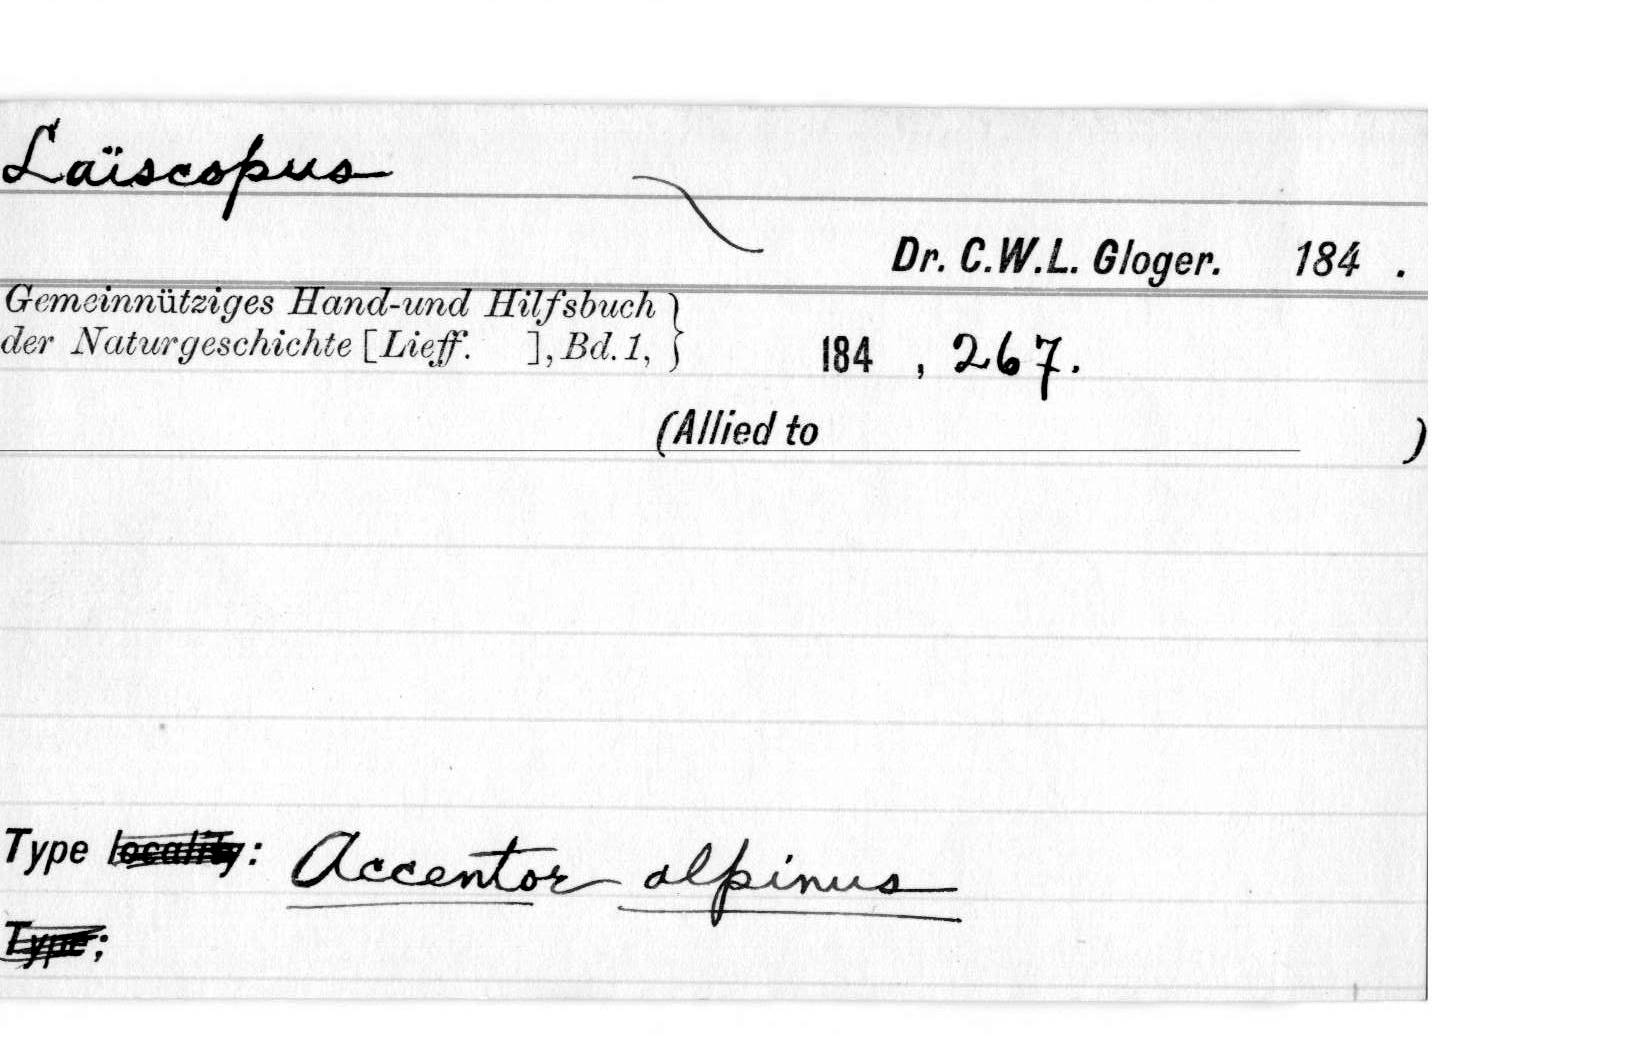 Laïscopus
Dr. C.W.L. Gloger. 184 .
Gemeinnütziges Hand-und Hilfsbuch }
der Naturgeschichte [Lieff. ], Bd. 1, } 184 , 267.
(Allied to )
Type locality: Accentor alpinus
Type;